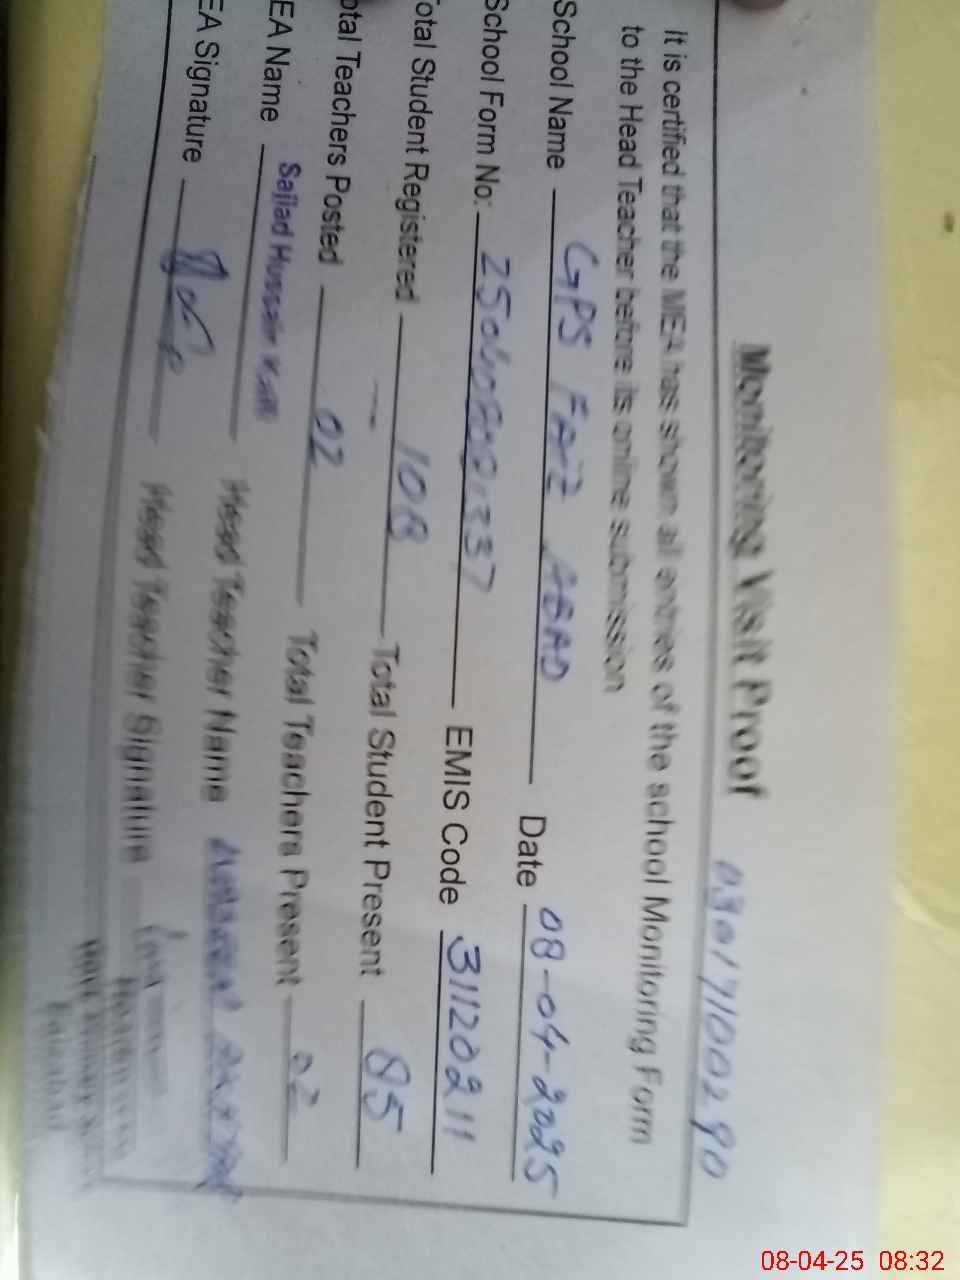 Monitoring Visit Proof
03017100290
It is certified that the MEA has shown all entries of the school Monitoring Form
to the Head Teacher before its online submission
School Name GPS FAIZ ABAD Date 08-04-2025
School Form No: EMIS Code 31120211
Total Student Registered 108 Total Student Present 85
otal Teachers Posted 02 Total Teachers Present 02
EA Name Sajjad Hussain Head Teacher Name
EA Signature Head Teacher Signature
08-04-25 08:32